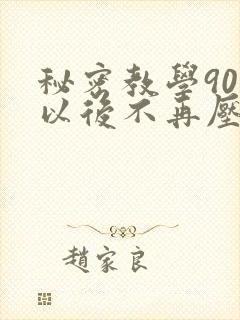 秘密教學90
以後不再壓
趙家良